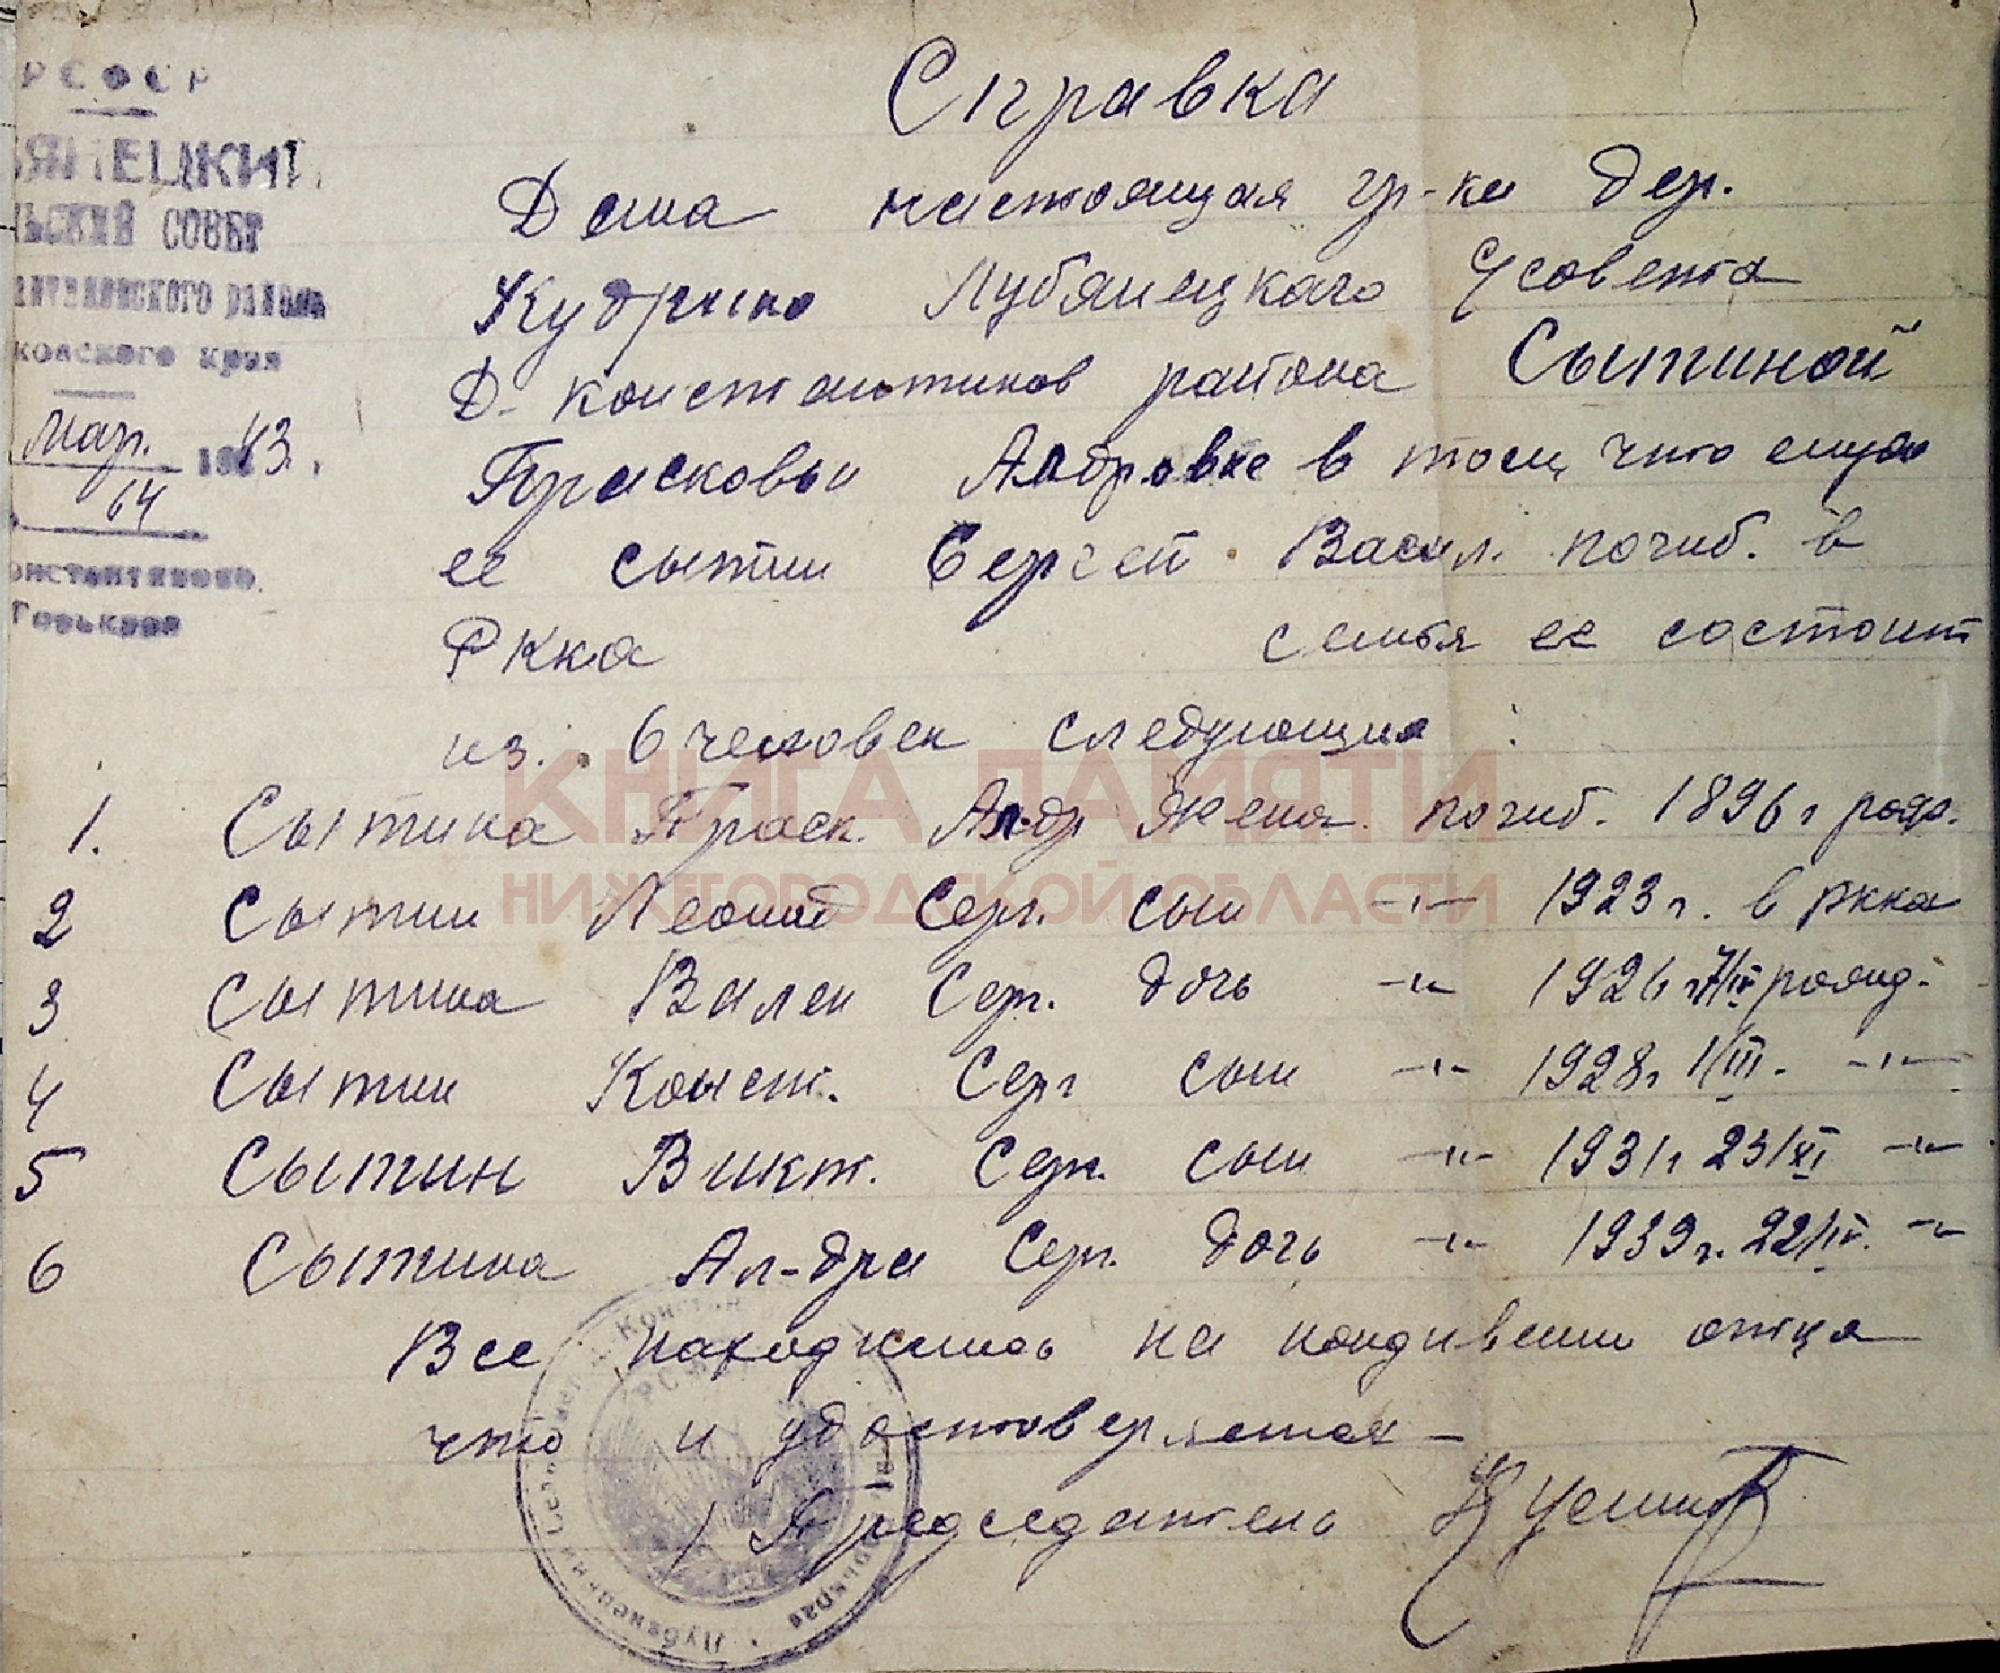 РСФСР
ЛЬСКИЙ СОВЕТ
КОНСТАНТИНОВСКОГО РАЙОНА
ковского края
Мар. 1943.
64
онстантиново
Горькрая
Справка
Дана настоящая гр-ке дер.
Кудрино Лубянецкого с/совета
Д-Константинов района Сытиной
Прасковьи Алдровне в том, что муж
ее Сытин Сергей Васил. погиб. в
РККА семья ее состоит
из. 6 человек следующие:
1. Сытина Праск. Ал-др жена погиб. 1896 г рожд.
2 Сытин Леонид Серг. сын -"- 1923 г. в ркка
3 Сытина Вален Серг. дочь -"- 1926 г 7/IV рожд.
4 Сытин Конст. Серг сын -"- 1928 г 1/III. -"-
5 Сытин Викт. Серг. сын -"- 1931 г 23/XI -"-
6 Сытина Ал-дра Серг. дочь -"- 1939 г. 22/IV. -"-
Все находились на иждивении отца
что и удостоверяется -
Председатель
КНИГА ПАМЯТИ
НИЖЕГОРОДСКОЙ ОБЛАСТИ